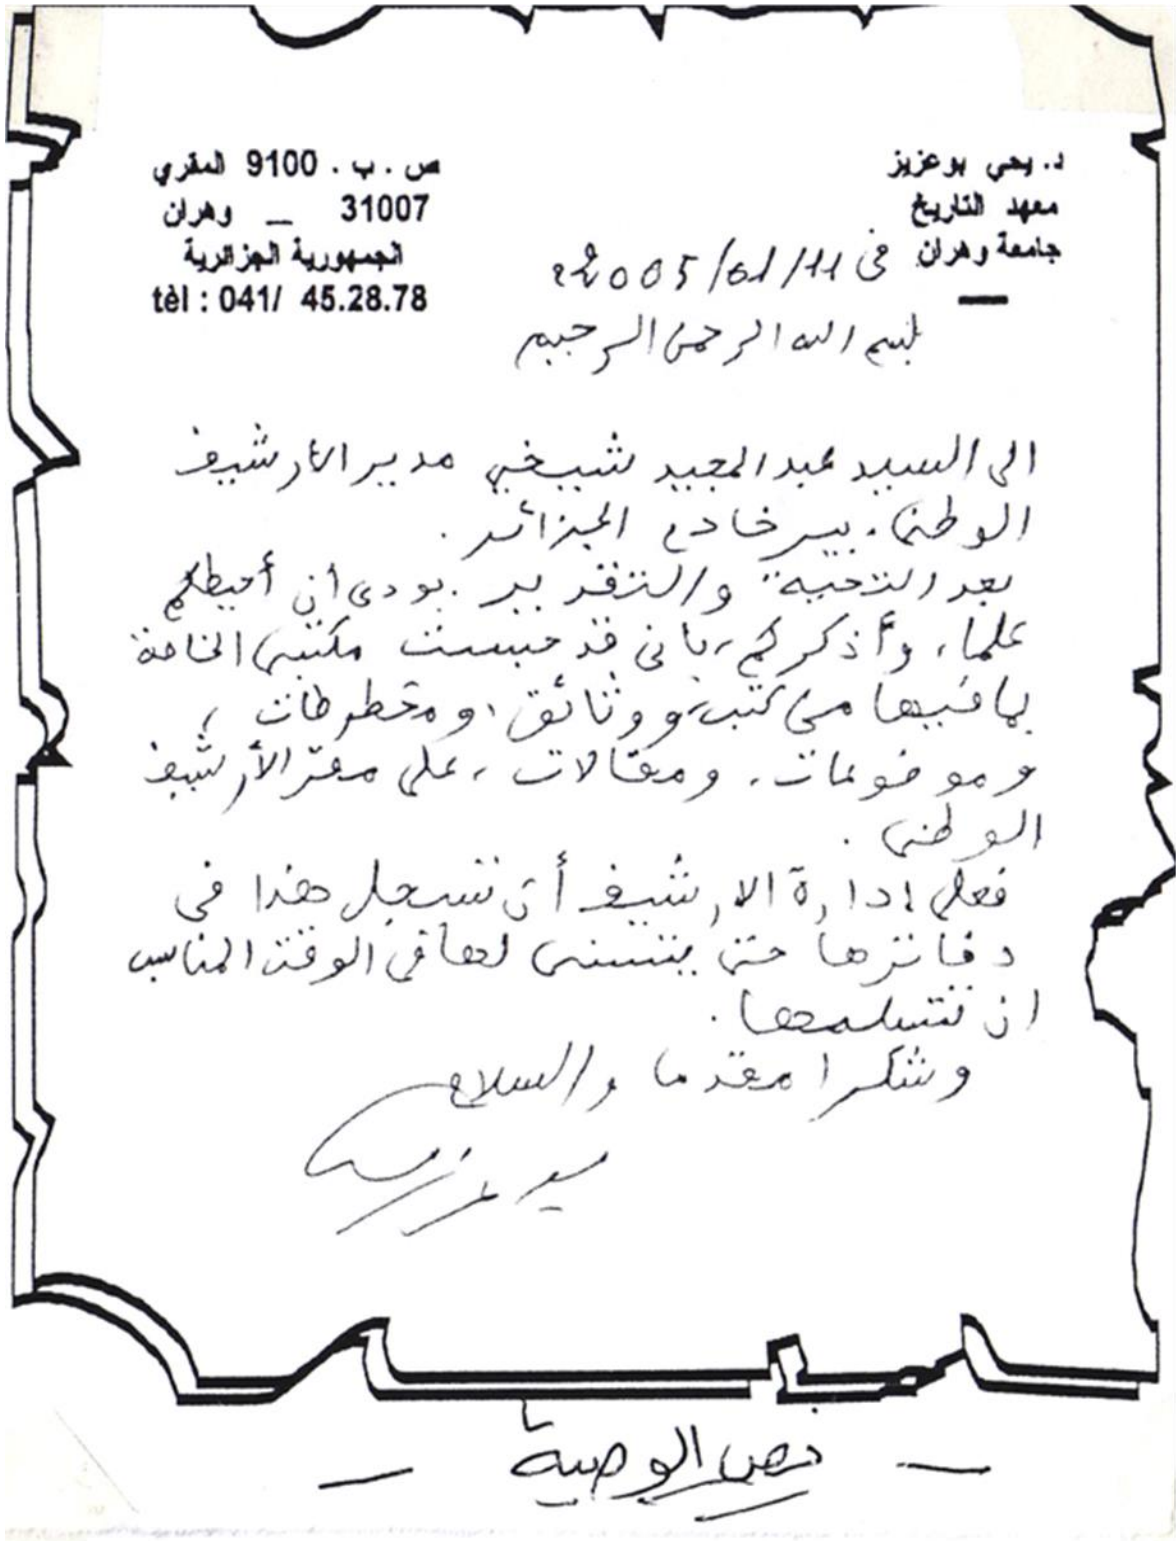 د. يحي بوعزيز
معهد التاريخ
جامعة وهران
ص . ب . 9100 المقري
31007 _ وهران
الجمهورية الجزائرية
tèl : 041/ 45.28.78
في 11/01/2005
بسم الله الرحمن الرحيم
الى السيد عبد المجيد شيخي مدير الأرشيف
الوطني. بير خادم الجزائر.
بعد التحية والتقدير. بودى أن أحيطكم
علما، وأذكركم، بانى قد حبست مكتبتى الخاصة
بما فيها من كتب، ووثائق، ومخطوطات،
وموضوعات، ومقالات، على مقر الأرشيف
الوطنى.
فعلى إدارة الارشيف أن تسجل هذا في
دفاترها حتى يتسنى لها في الوقت المناسب
ان تتسلمها.
وشكرا مقدما والسلام
نص الوصية